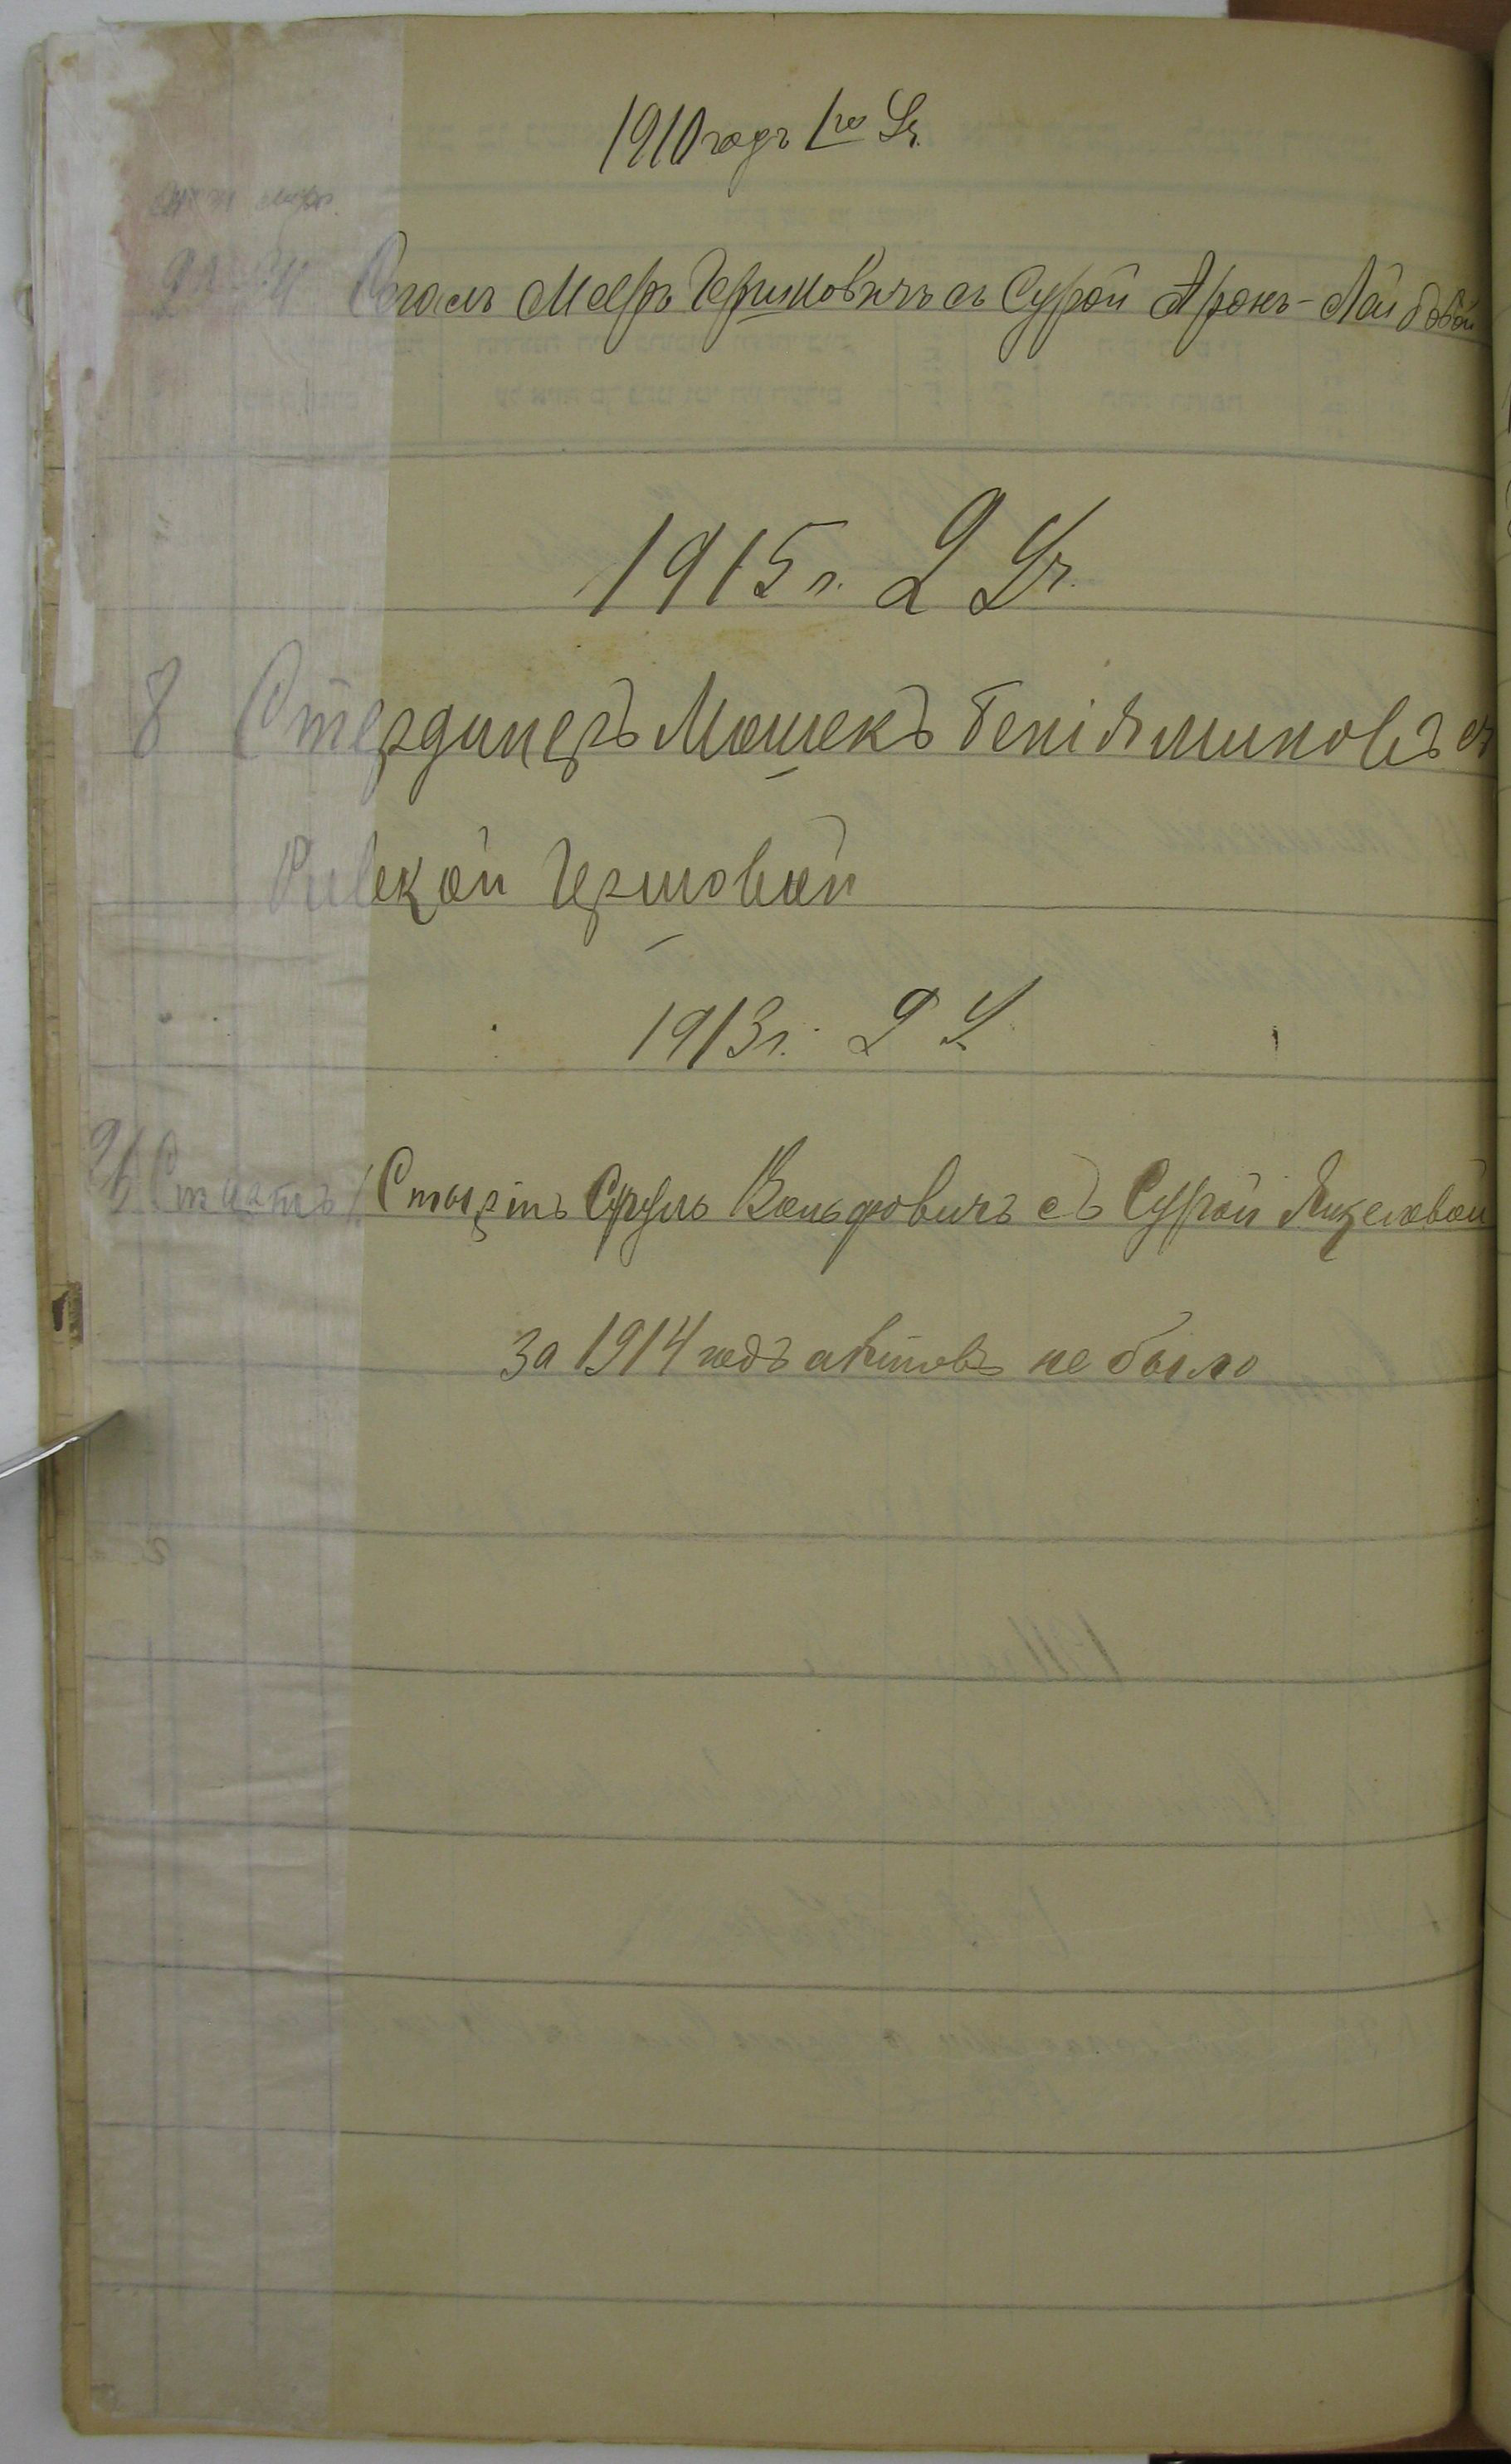 1910 годъ 1го Уч.
Сегаль Мееръ Гершковичъ съ Сурой Аронъ-Лайбовой
1915 г. 2 Уч.
8 Стердинеръ Мошекъ Беніяминовъ съ
Ривекой Гершовой
1913 г. 2 У.
21 Сруль Вольфовичъ съ Сурой Янкелевой
за 1914 годъ актовъ не было